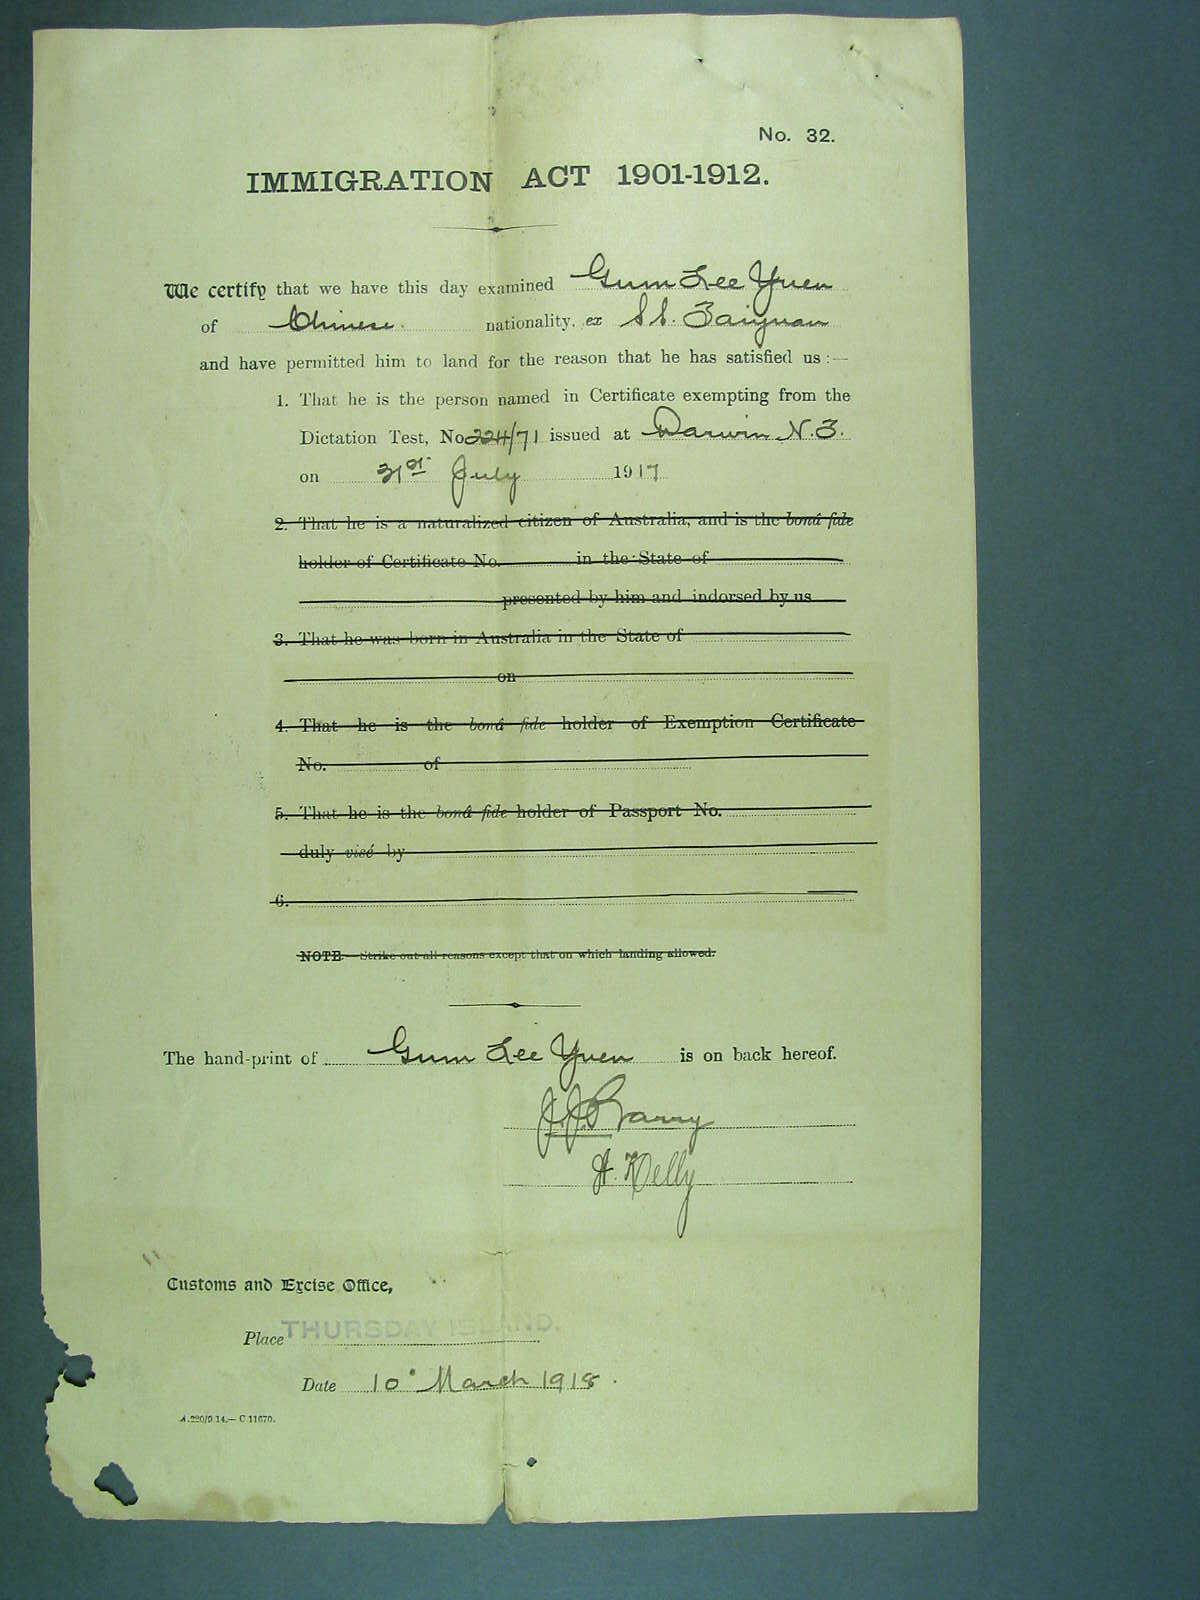 No. 32.
IMMIGRATION ACT 1901-1912.
We certify that we have this day examined Gum Lee Yuen
of Chinese. nationality. ex S.S. Taiyuan
and have permitted him to land for the reason that he has satisfied us :—
1. That he is the person named in Certificate exempting from the
Dictation Test, No 224/71 issued at Darwin N.T.
on 31st July 1917
2. That he is a naturalized citizen of Australia, and is the bonâ fide
holder of Certificate No. in the State of
presented by him and indorsed by us
3. That he was born in Australia in the State of
on
4. That he is the bonâ fide holder of Exemption Certificate
No. of
5. That he is the bonâ fide holder of Passport No.
duly visé by
6.
NOTE.—Strike out all reasons except that on which landing allowed.
The hand-print of Gum Lee Yuen is on back hereof.
J.J. Barry
H. Kelly
Customs and Excise Office,
Place THURSDAY ISLAND.
Date 10 March 1918.
A.220/9.14.—C.11670.